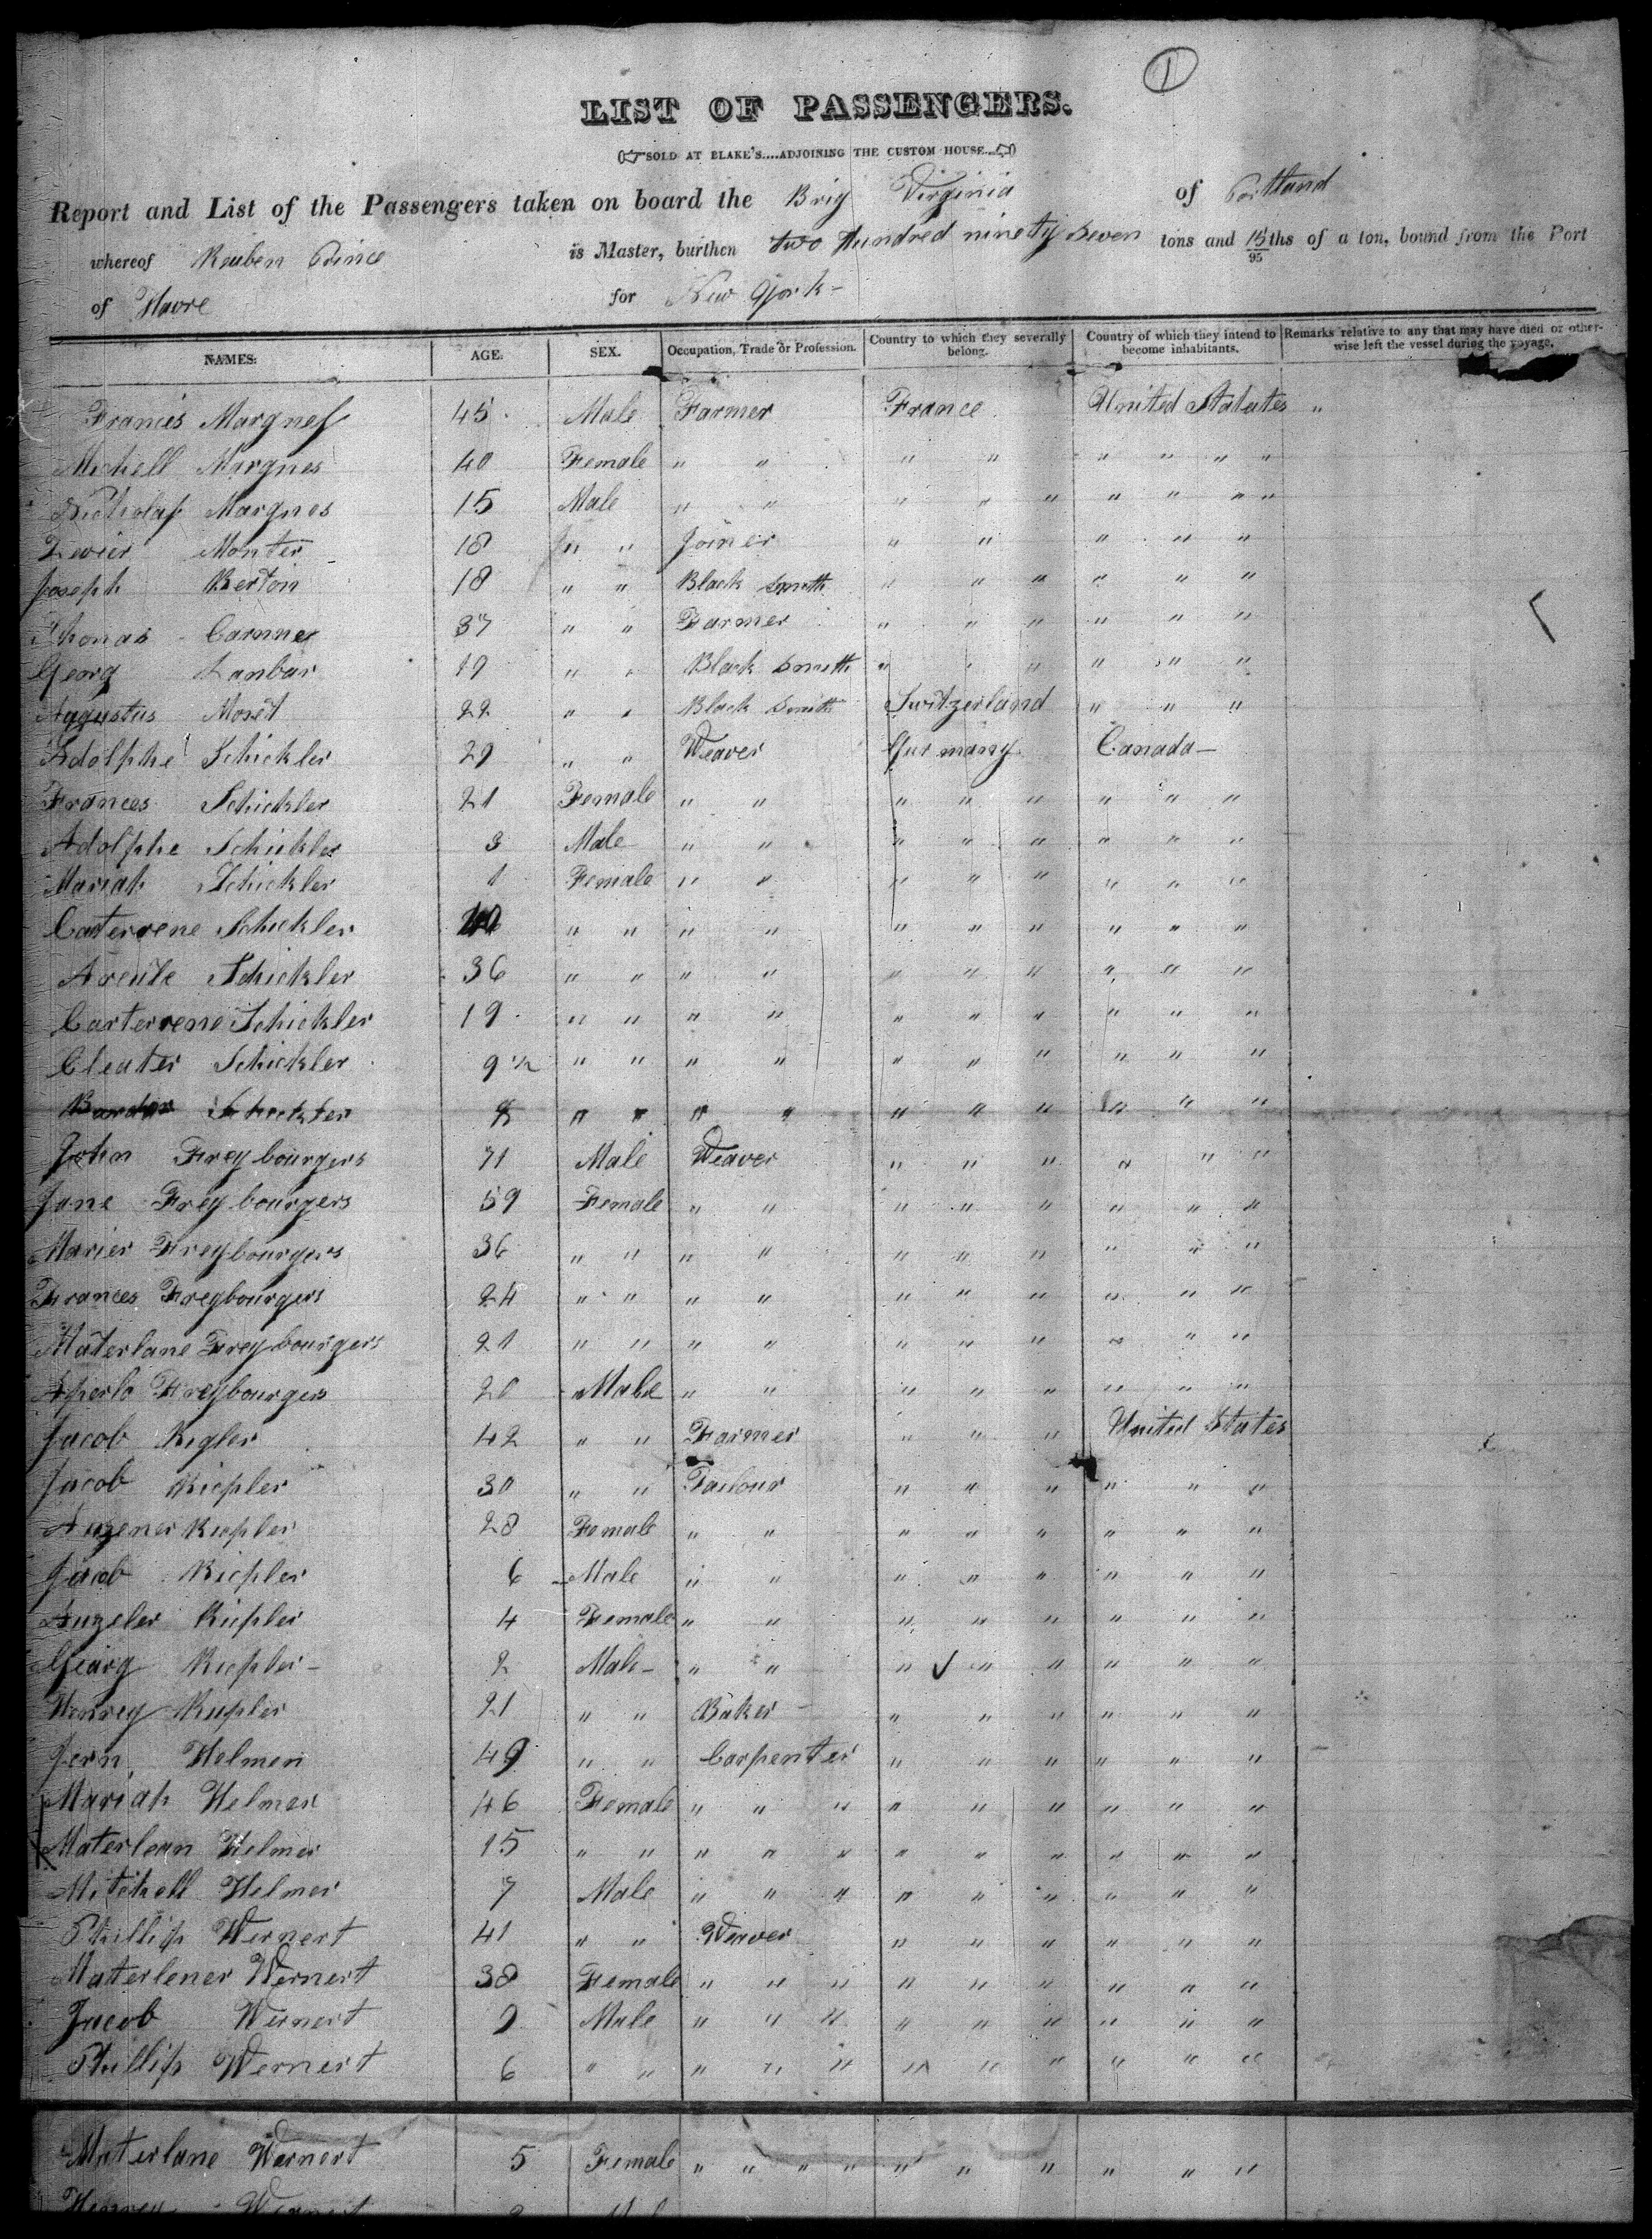 1
LIST OF PASSENGERS.
SOLD AT BLAKE'S....ADJOINING THE CUSTOM HOUSE
Report and List of the Passengers taken on board the Brig Virginia of Portland
whereof Reuben Prince is Master, burthen two Hundred ninety Seven tons and 15/95 ths of a ton, bound from the Port
of Havre for New York -
NAMES. AGE. SEX. Occupation, Trade or Profession. Country to which they severally belong. Country of which they intend to become inhabitants. Remarks relative to any that may have died or otherwise left the vessel during the voyage.
Francis Margnes 45 Male Farmer France United Statates "
Michell Margnes 40 Female " " " " " " " "
Nicholas Margnes 15 Male " " " " " " " " "
Monter 18 " " Joiner " " " " "
Joseph Berton 18 " " Black smith " " " " " "
Thomas 37 " " Farmer " " " " " "
Georg Lanbar 19 " " Black smith " " " " " "
Augustus Moset 22 " " Black Smith Switzerland " " "
Adolphe Schickler 29 " " Weaver Gurmany Canada -
Frances Schickler 21 Female " " " " " " " "
Adolphe Schickler 3 Male " " " " " " " "
Mariah Schickler 1 Female " " " " " " " "
Caterrene Schickler " " " " " " " " " "
Schickler 36 " " " " " " " " " "
Carterrene Schickler 19 " " " " " " " " " "
Cleater Schickler 9 1/2 " " " " " " " " " "
Schickler " " " " " " " " " "
John Freybourgers 71 Male Weaver " " " " " "
Jane Freybourgers 59 Female " " " " " " " "
Marier Freybourgers 36 " " " " " " " " " "
Frances Freybourgers 24 " " " " " " " " " "
Materlane Freybourgers 21 " " " " " " " " " "
Freybourgers 20 Male " " " " " " " "
Jacob Kigler 42 " " Farmer " " " United States
Jacob Riepler 30 " " Tailour " " " " " "
Riepler 28 Female " " " " " " " "
Jacob Riepler 6 Male " " " " " " " "
Anzeler Riepler 4 Female " " " " " " " "
Georg Riepler - 2 Male - " " " " " " " "
Henrey Riepler 21 " " Baker - " " " " " "
Jern Helmen 49 " " Carpenter " " " " " "
Mariah Helmer 46 Female " " " " " " " " "
Materlean Helmer 15 " " " " " " " " " " "
Mitchell Helmer 7 Male " " " " " " " " "
Phillip Wernert 41 " " Weaver " " " " " "
Matterlener Wernert 38 Female " " " " " " " " "
Jacob Wernert 9 Male " " " " " " " " "
Phillip Wernert 6 " " " " " " " " " " "
Materlane Wernert 5 Female " " " " " " " " " "
Henrey Wernert